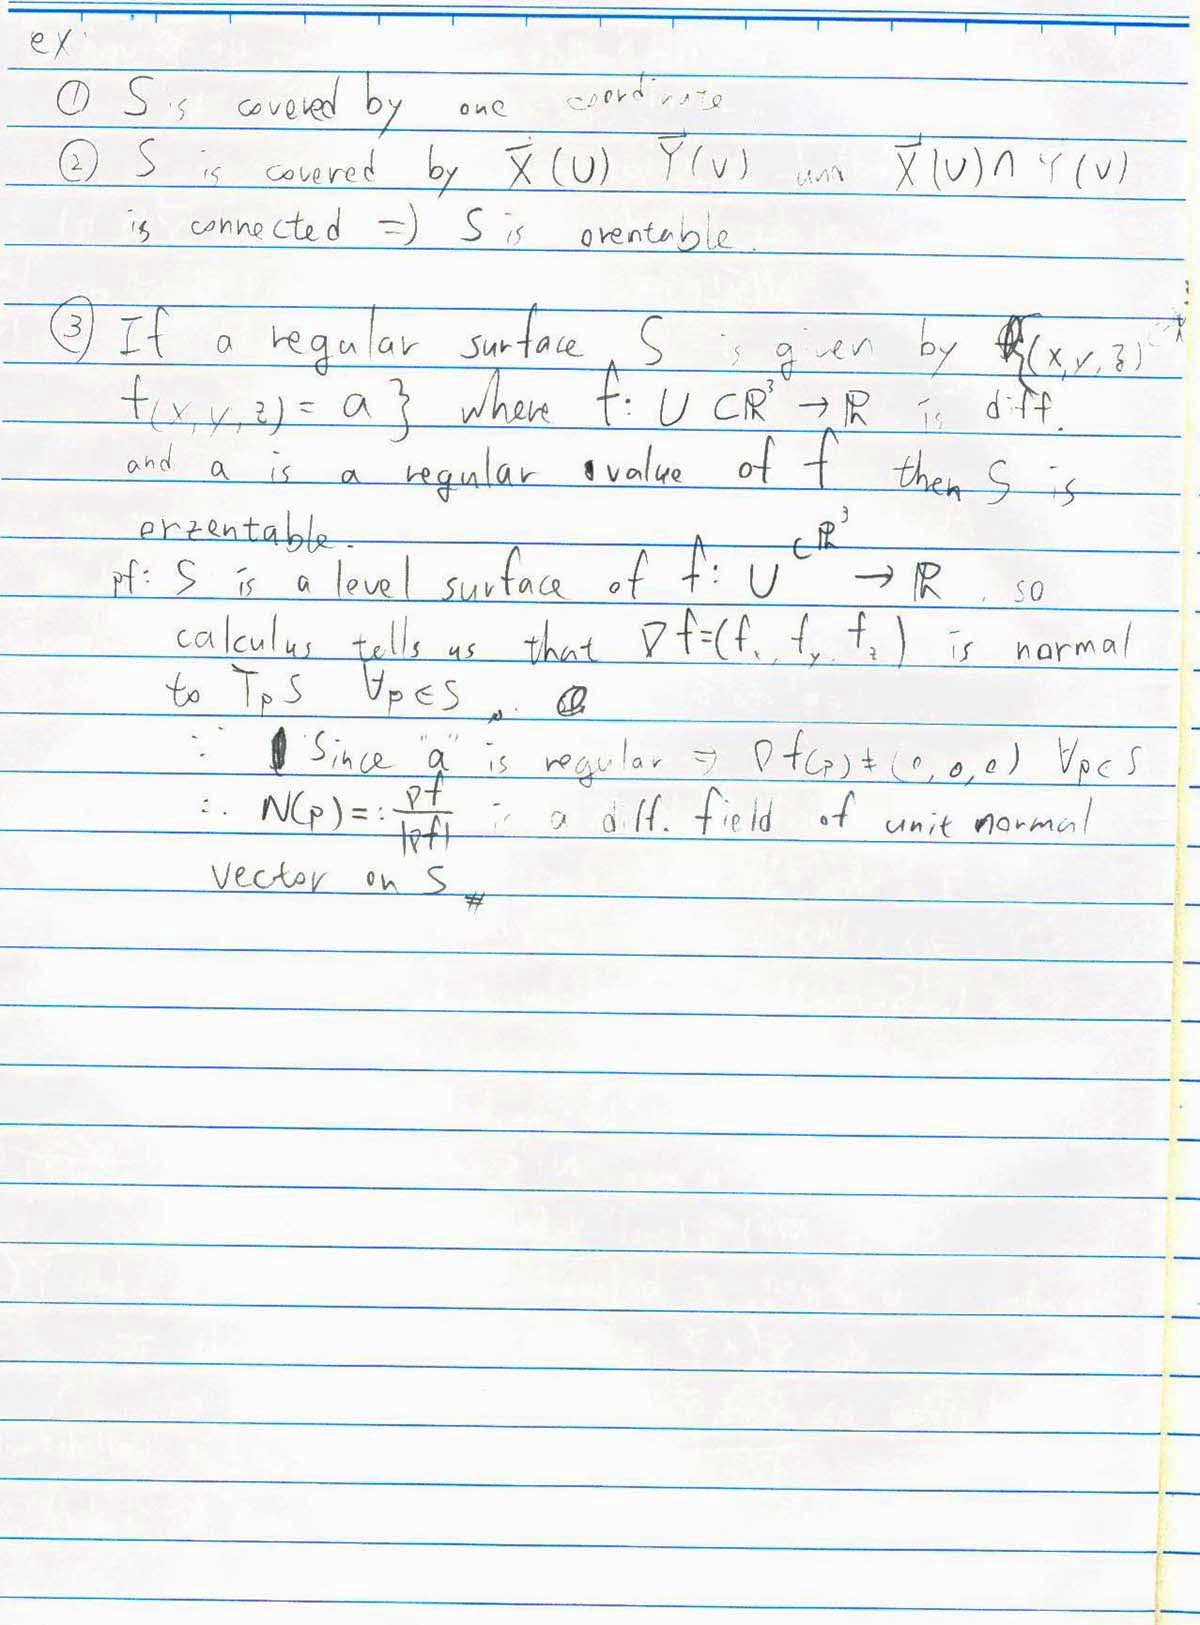 ex:
① S is covered by one coordinate
② S is covered by X⃗(U) Y⃗(V) and X⃗(U)∩Y(V)
is connected ⇒ S is orentable.
③ If a regular surface S is given by {(x,y,z)
f(x,y,z) = a} where f: U⊂ℝ³ → ℝ is diff.
and a is a regular value of f then S is
orzentable.
pf: S is a level surface of f: U⊂ℝ³ → ℝ. so
calculus tells us that ∇f=(fx, fy, fz) is normal
to TpS ∀p∈S
∵ Since "a" is regular ⇒ ∇f(p)≠(0,0,0) ∀p∈S
∴ N(p)=: ∇f/|∇f| is a diff. field of unit normal
vector on S #